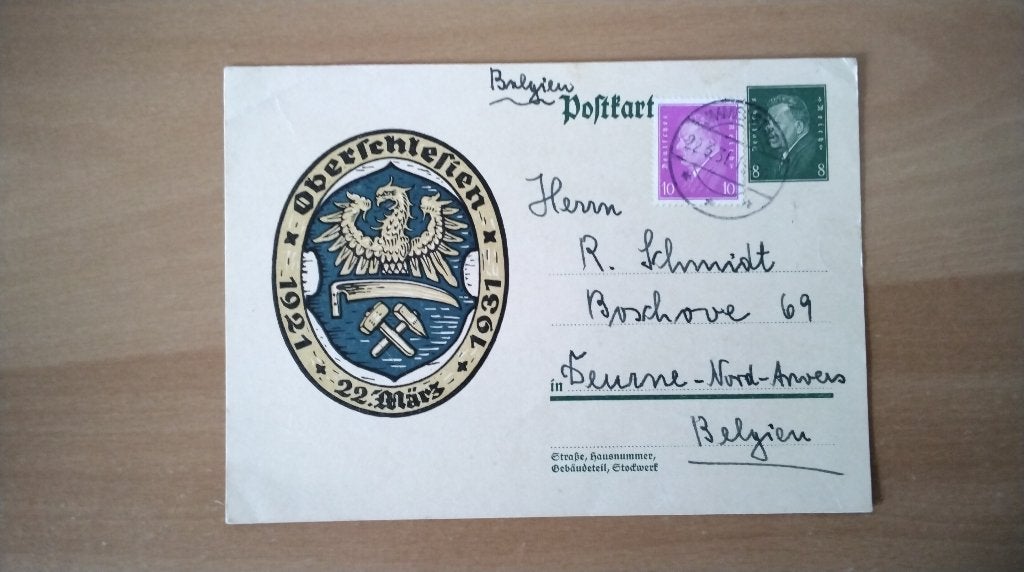 Belgien
Postkart
Oberschlesien
1921
1931
22. März
Deutsches
10 10
8 8
Herrn
R. Schmidt
Boschove 69
in Deurne-Nord-Anvers
Belgien
Straße, Hausnummer,
Gebäudeteil, Stockwerk